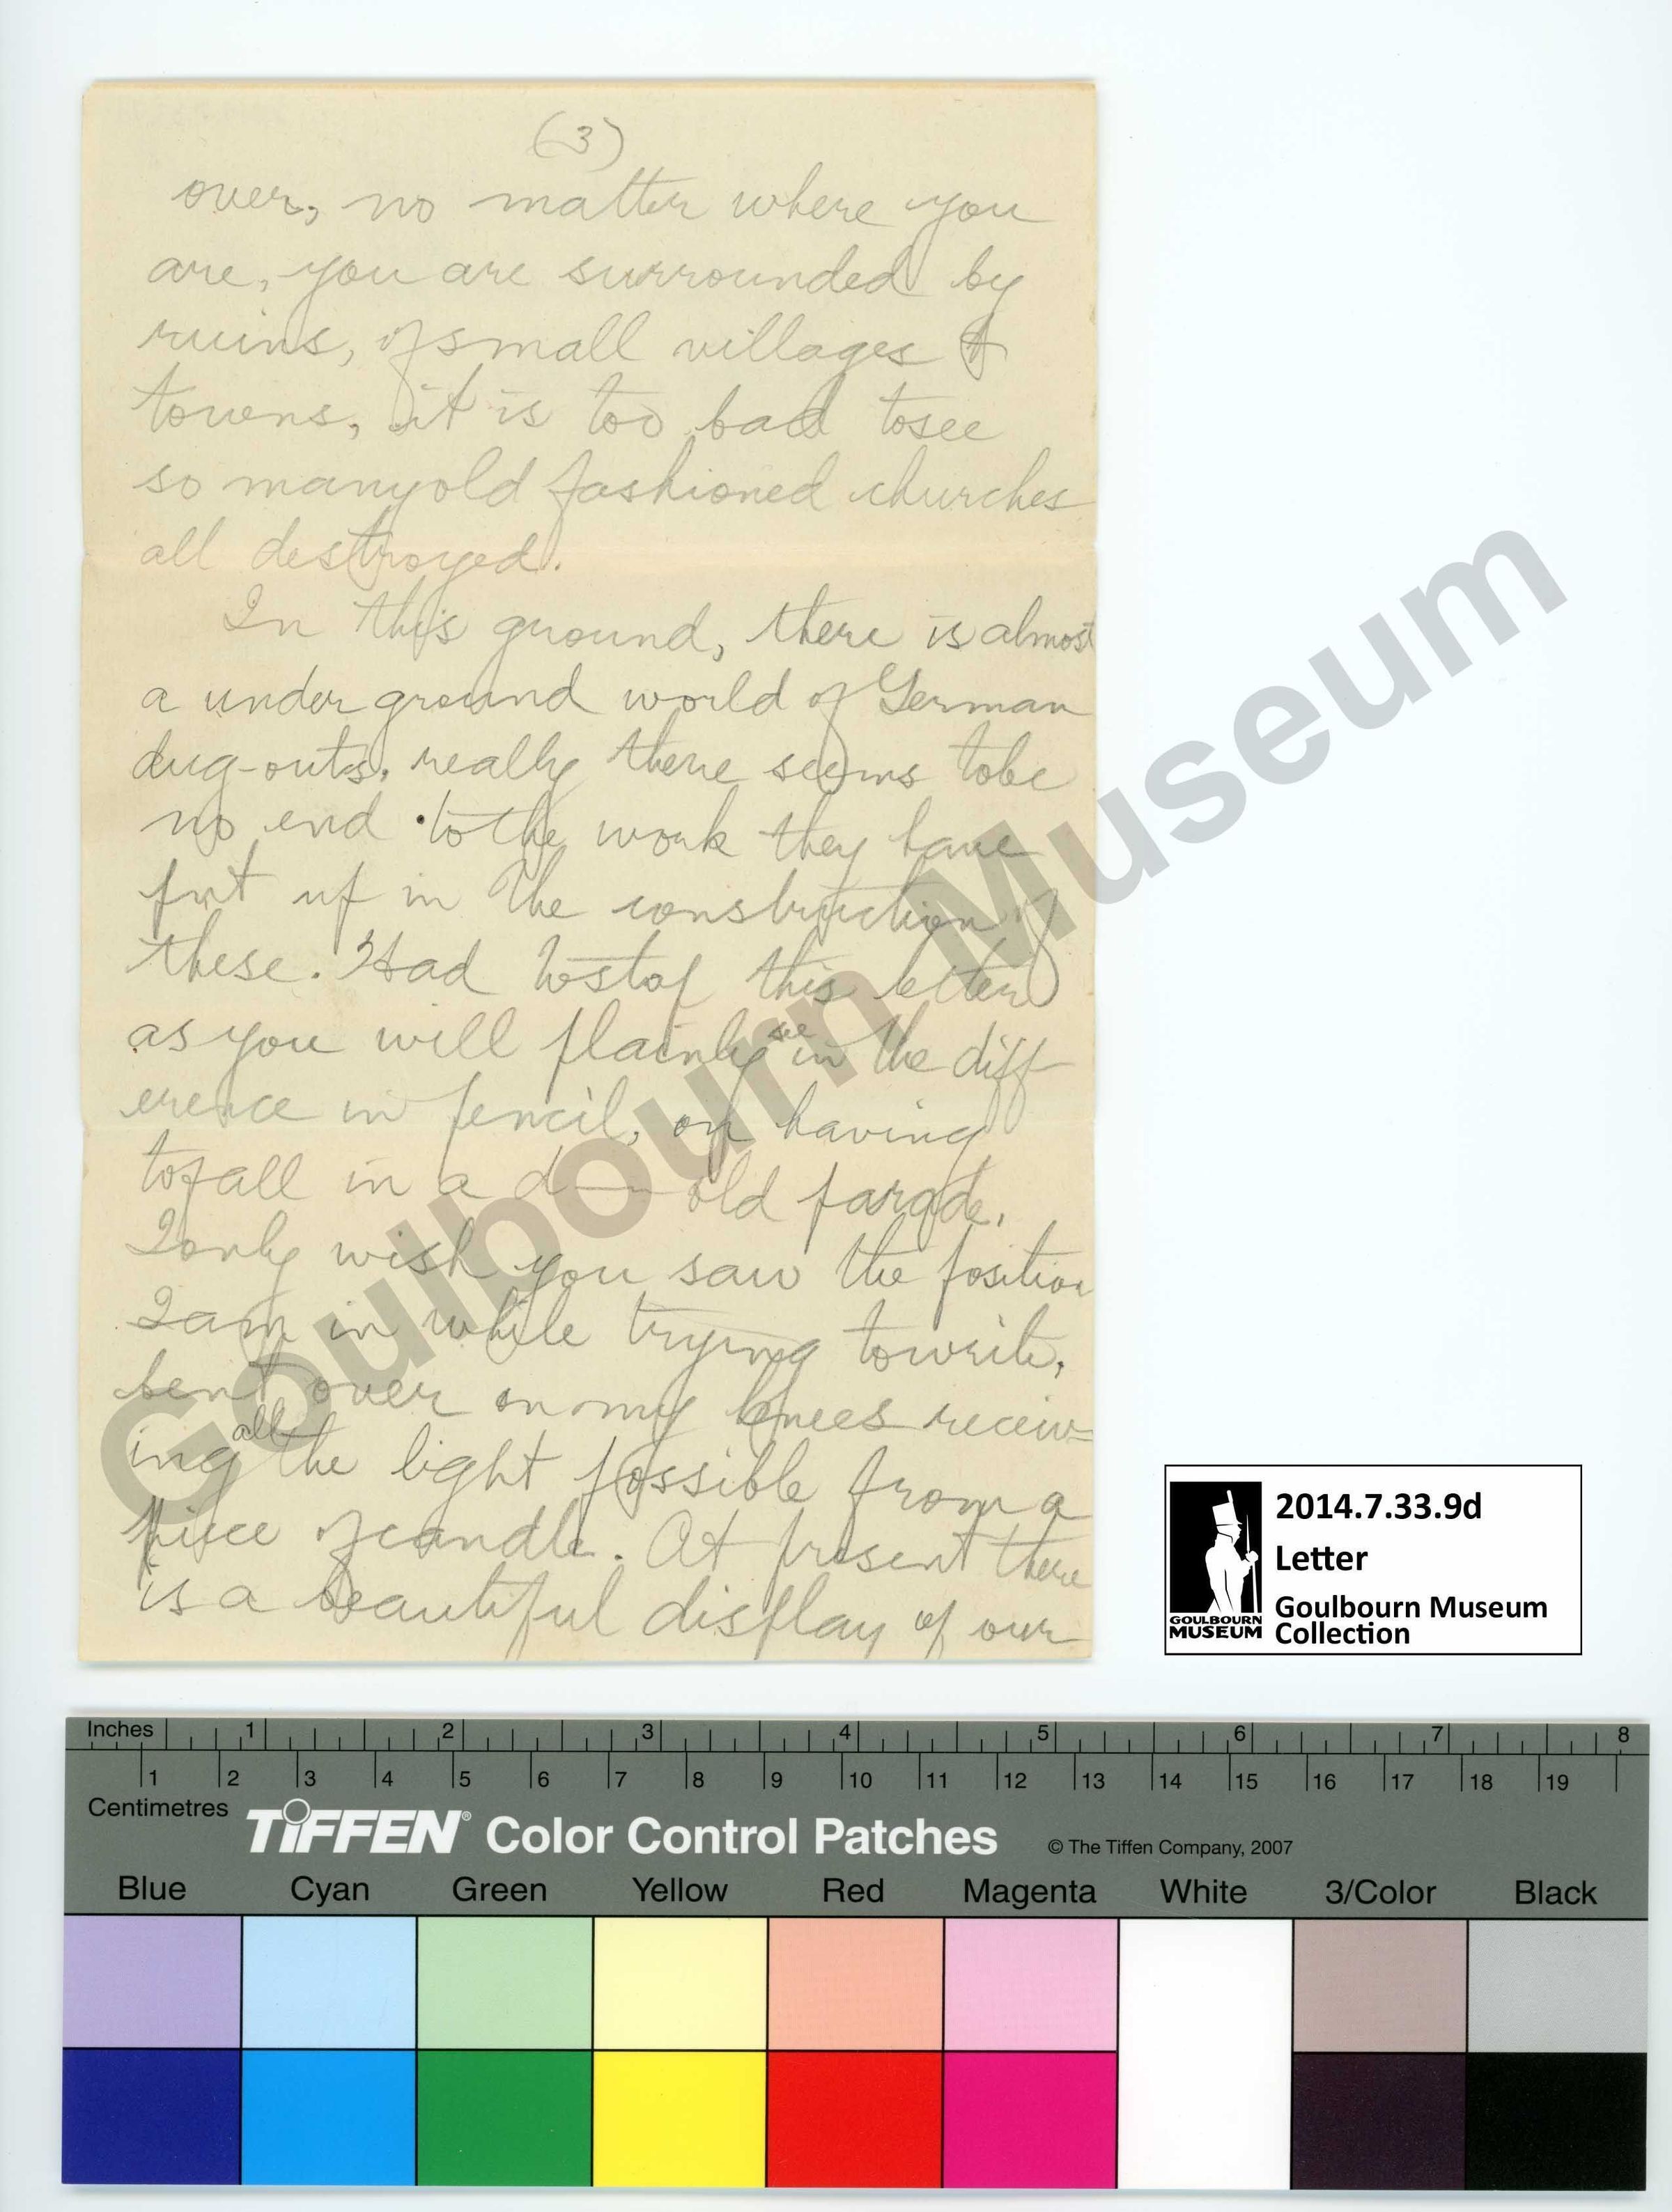 (3)
over, no matter where you
are, you are surrounded by
ruins, of small villages &
towns, it is too bad to see
so many old fashioned churches
all destroyed.
In this ground, there is almost
a under ground world of German
dug-outs, really there seems to be
no end to the work they have
put up in the construction of
these. Had to stop this letter
as you will plainly see in the diff-
erence in pencil, on having
to fall in a d—— old parade.
I only wish you saw the position
I am in while trying to write,
bent over on my knees receiv=
ing all the light possible from a
piece of candle. At present there
is a beautiful display of our
Goulbourn Museum
GOULBOURN
MUSEUM
2014.7.33.9d
Letter
Goulbourn Museum
Collection
Inches 1 2 3 4 5 6 7 8
1 2 3 4 5 6 7 8 9 10 11 12 13 14 15 16 17 18 19
Centimetres
TIFFEN® Color Control Patches © The Tiffen Company, 2007
Blue Cyan Green Yellow Red Magenta White 3/Color Black